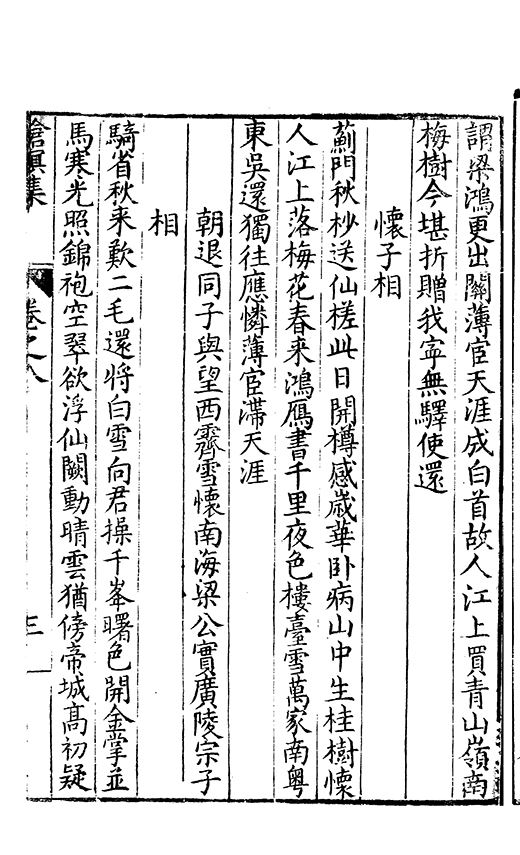 謂梁鴻更出關薄宦天涯成白首故人江上買青山嶺南
梅樹今堪折贈我寧無驛使還
懷子相
薊門秋杪送仙槎此日開樽感嵗華卧病山中生桂樹懷
人江上落梅花春来鴻鴈書千里夜色樓臺雪萬家南粤
東吳還獨往應憐薄宦滯天涯
朝退同子與望西霽雪懷南海梁公實廣陵宗子
相
騎省秋来歎二毛還將白雪向君操千峯曙色開金掌並
馬寒光照錦袍空翠欲浮仙闕動晴雲猶傍帝城髙初疑
滄溟集
卷之八
三